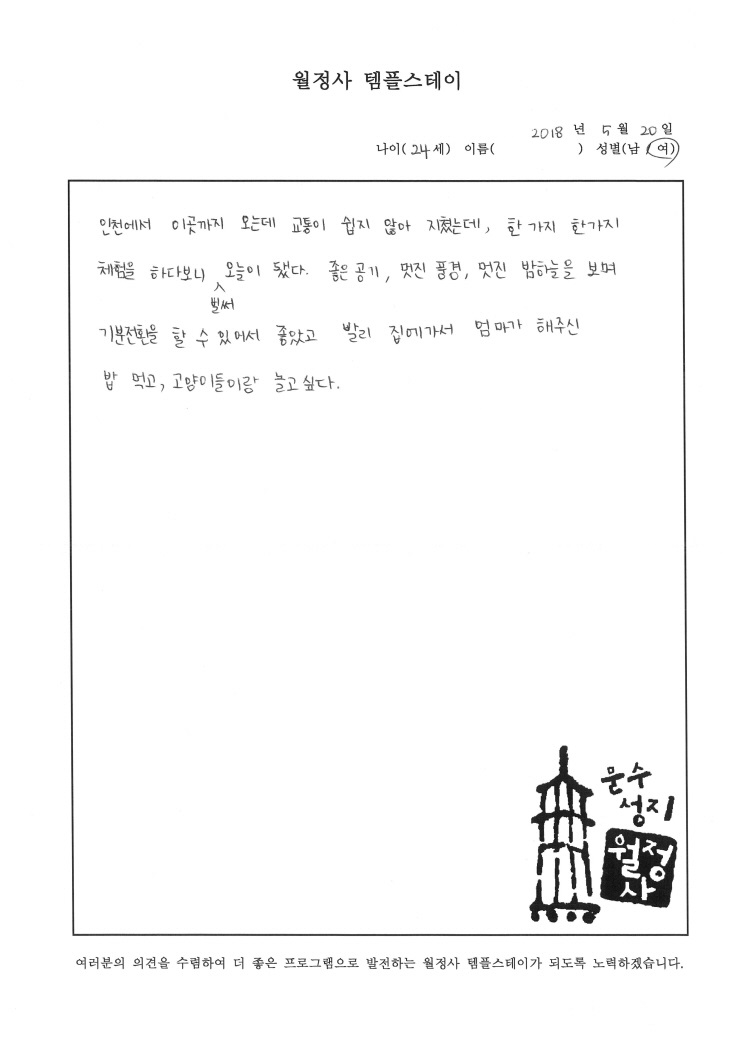 월정사 템플스테이
2018 년 5 월 20 일
나이( 24 세) 이름( ) 성별(남 / 여)
인천에서 이곳까지 오는데 교통이 쉽지 않아 지쳤는데, 한 가지 한가지
체험을 하다보니 벌써 오늘이 됐다. 좋은 공기, 멋진 풍경, 멋진 밤하늘을 보며
기분전환을 할 수 있어서 좋았고 빨리 집에가서 엄마가 해주신
밥 먹고, 고양이들이랑 놀고싶다.
문수
성지
월정
사
여러분의 의견을 수렴하여 더 좋은 프로그램으로 발전하는 월정사 템플스테이가 되도록 노력하겠습니다.